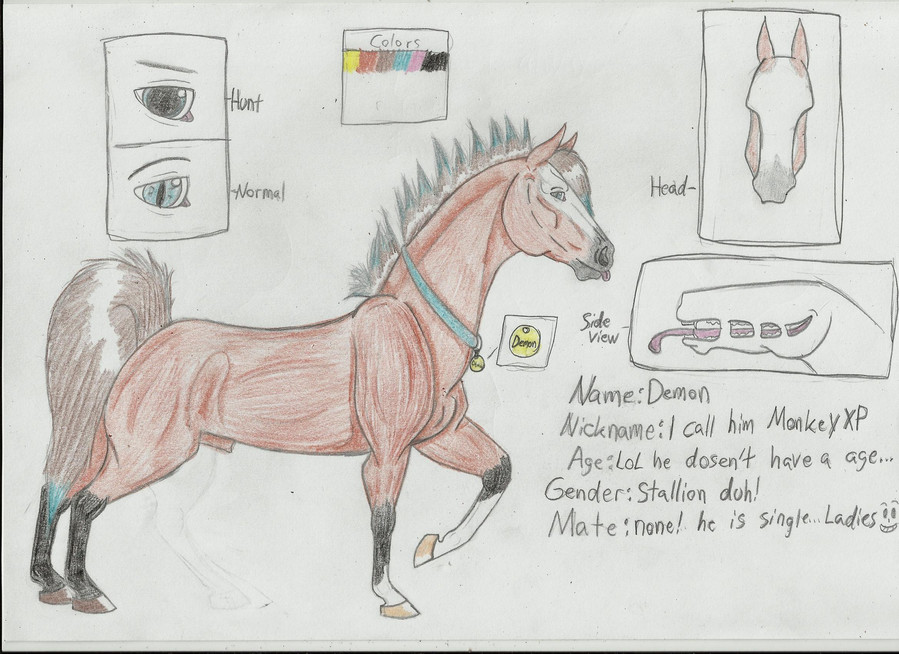 Colors
Hunt
Normal
Head
Demon
Side
view
Name: Demon
Nickname: I call him Monkey XP
Age: LoL he dosen't have a age...
Gender: Stallion doh!
Mate: none! he is single... Ladies